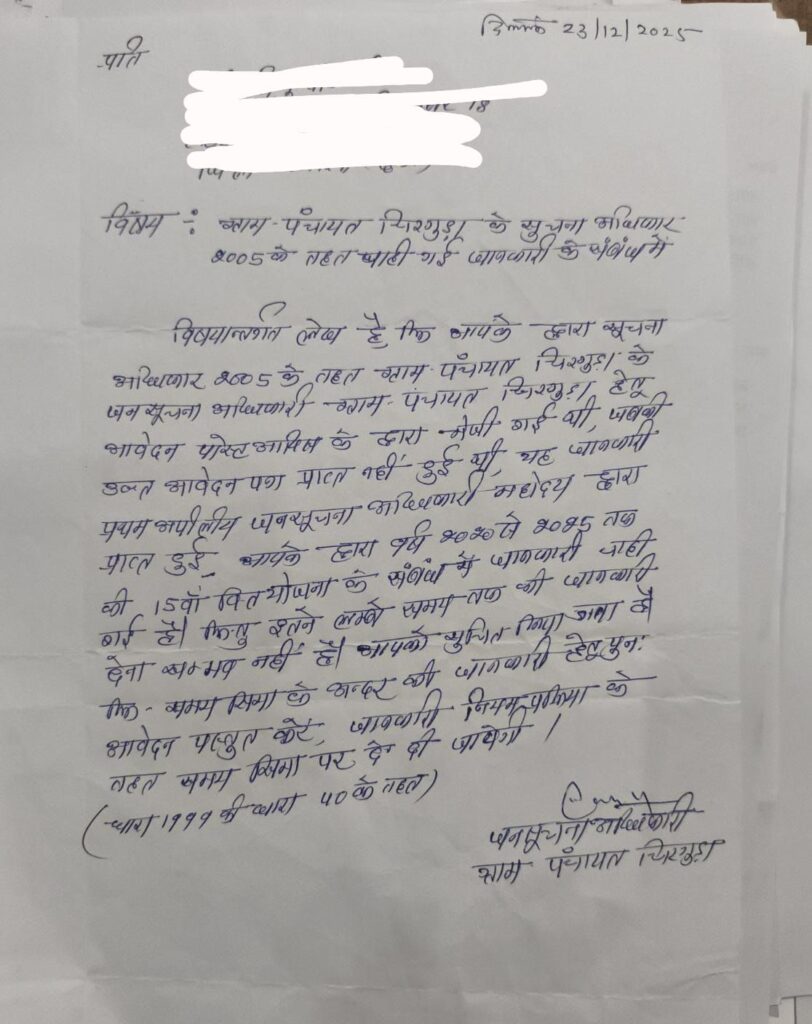 दिनांक 23/12/2025
प्रति
18
विषय : ग्राम-पंचायत चिरगुड़ा के सुचना अधिकार
2005 के तहत चाही गई जानकारी के संबंध में
विषयान्तर्गत लेख है, कि आपके द्वारा सूचना
अधिकार 2005 के तहत ग्राम-पंचायत चिरगुड़ा के
जनसूचना अधिकारी ग्राम-पंचायत चिरगुड़ा हेतू
आवेदन पोस्ट आफिस के द्वारा भेजी गई थी, जबकी
उक्त आवेदन पत्र प्राप्त नहीं हुई थी, यह जानकारी
प्रथम अपीलीय जनसूचना अधिकारी महोदय द्वारा
प्राप्त हुई, आपके द्वारा वर्ष 2020 से 2025 तक
की 15वाँ वित योजना के संबंध में जानकारी चाही
गई है। किन्तु इतने लम्बे समय तक की जानकारी
देना सम्भव नहीं है। आपको सुचित किया जाता है
कि- समय सिमा के अन्दर की जानकारी हेतू पुन:
आवेदन प्रस्तुत करें, जानकारी नियम प्रक्रिया के
तहत समय सिमा पर दे दी जायेगी।
(धारा 1999 की धारा 40 के तहत)
जनसूचना अधिकारी
ग्राम पंचायत चिरगुड़ा